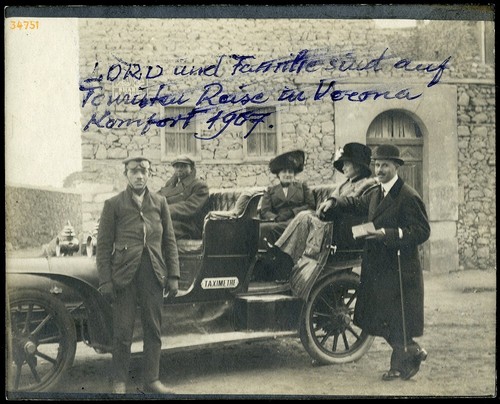 34751
LORD und Familie sind auf
Touristen Reise in Verona
Komfort 1907.
TAXIMETRE